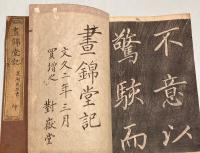 不意以
驚駭而
晝錦堂記
文久二年三月
買增之
對嶽堂
晝錦堂記